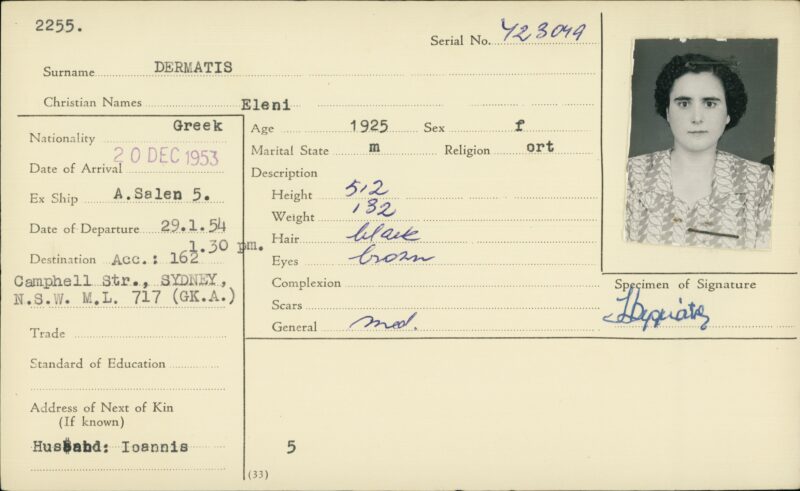 2255.
Serial No. 423099
Surname DERMATIS
Christian Names Eleni
Nationality Greek
Date of Arrival 20 DEC 1953
Ex Ship A.Salen 5.
Date of Departure 29.1.54
1.30 pm.
Destination Acc.: 162
Camphell Str., SYDNEY,
N.S.W. M.L. 717 (GK.A.)
Trade
Standard of Education
Address of Next of Kin
(If known)
Husband: Ioannis
Age 1925 Sex f
Marital State m Religion ort
Description
Height 5,2
Weight 132
Hair black
Eyes brown
Complexion
Scars
General med.
5
(33)
Specimen of Signature